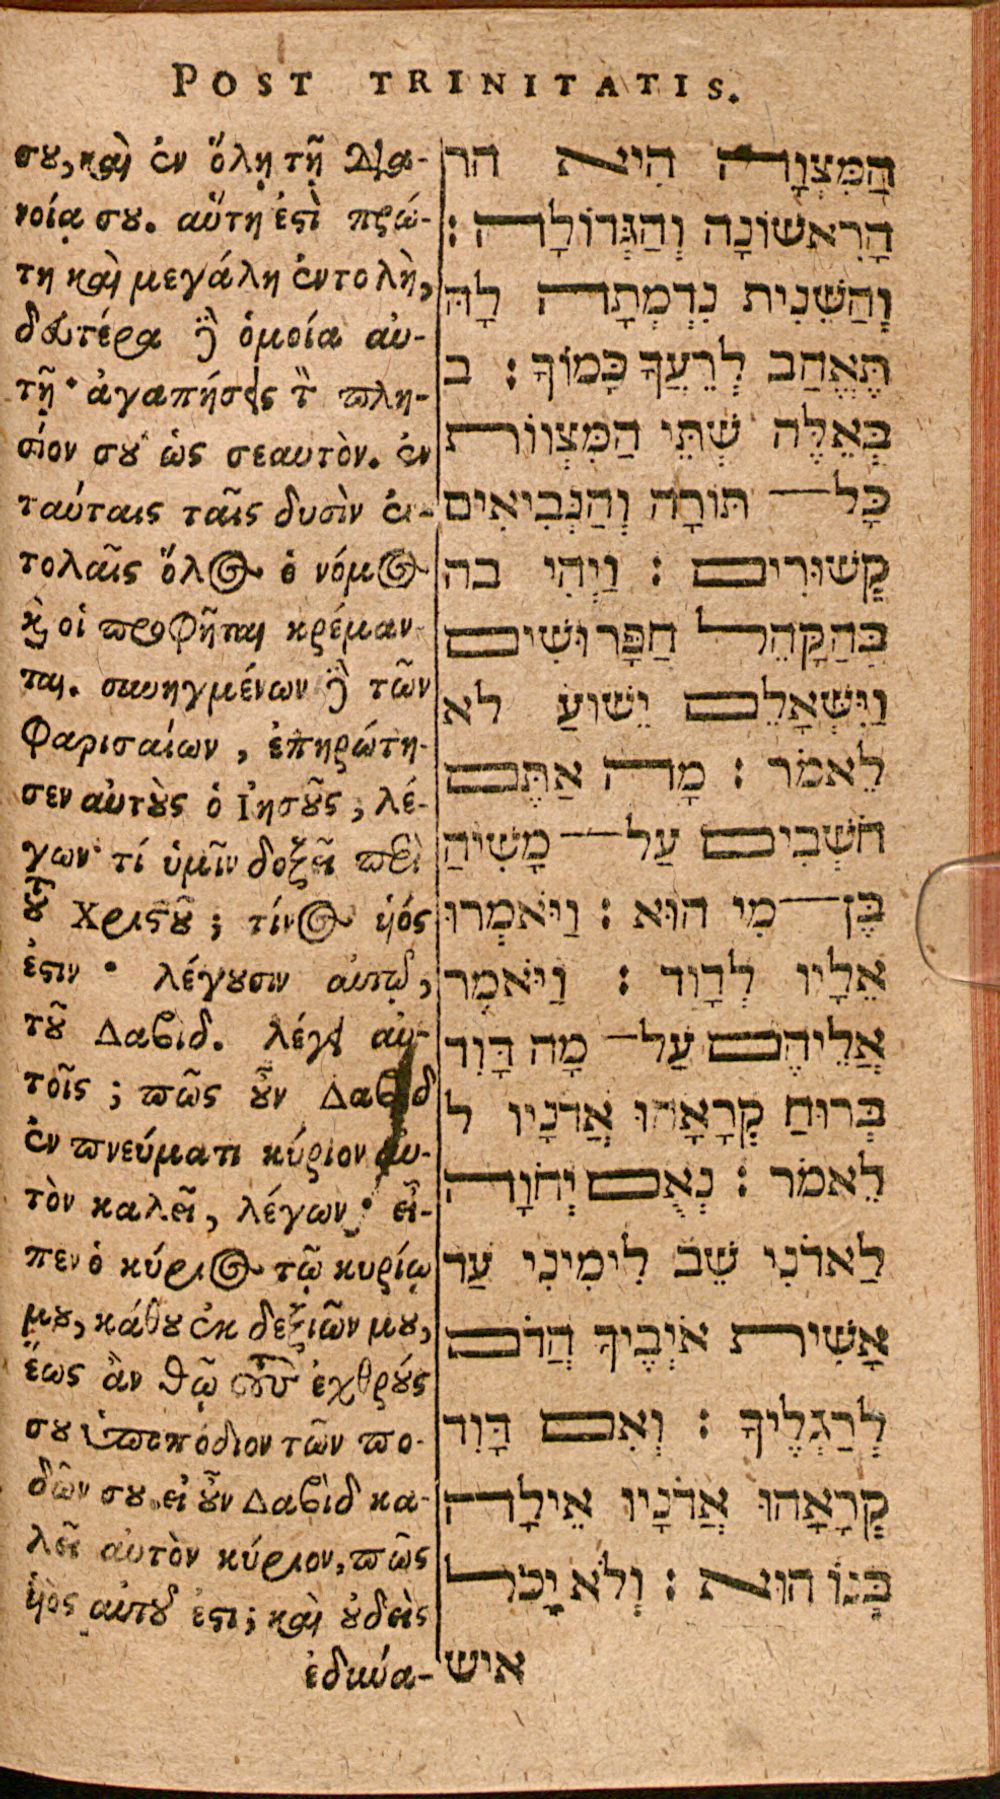 POST TRINITATIS.
σου, καὶ ἐν ὅλῃ τῇ δια-
νοίᾳ σου. αὕτη ἐστὶ πρώ-
τη καὶ μεγάλη ἐντολὴ,
δευτέρα δὲ ὁμοία αὐ-
τῇ· ἀγαπήσεις τὸν πλη-
σίον σου ὡς σεαυτὸν. ἐν
ταύταις ταῖς δυσὶν ἐν-
τολαῖς ὅλος ὁ νόμος
καὶ οἱ προφῆται κρέμαν-
ται. συνηγμένων δὲ τῶν
Φαρισαίων, ἐπηρώτη-
σεν αὐτοὺς ὁ Ἰησοῦς, λέ-
γων· τί ὑμῖν δοκεῖ περὶ
τοῦ Χριστοῦ; τίνος ἱιός
ἐστιν· λέγουσιν αὐτῷ,
τοῦ Δαβιδ. λέγει αὐ-
τοῖς; πῶς οὖν Δαβιδ
ἐν πνεύματι κύριον αὐ-
τὸν καλεῖ, λέγων· εἶ-
πεν ὁ κύριος τῷ κυρίῳ
μου, κάθου ἐκ δεξιῶν μου,
ἕως ἂν θῶ τοὺς ἐχθρούς
σου ὑποπόδιον τῶν πο-
δῶν σου. εἰ οὖν Δαβὶδ κα-
λεῖ αὐτὸν κύριον, πῶς
ἱιὸς αὐτοῦ ἐστι; καὶ οὐδεὶς
ἐδύνα-
הַמִּצְוָה הִיא הר
הָרִאשׁוֹנָה וְהַגְּדוֹלָה :
וְהַשֵּׁנִית נִדְמְתָה לָהּ
תֶּאֱהַב לְרֵעֲךָ כָּמוֹךָ : ב
בְּאֵלֶּה שְׁתֵּי הַמִּצְווֹת
כָּל־ תּוֹרָה וְהַנְּבִיאִים
קְשׁוּרִים : וַיְהִי בה
בְּהַקָהֵל הַפָּרוּשִׁים
וַיִּשְׁאָלֵם יֵשׁוּעַ לא
לֵאמֹר : מָה אַתֶּם
חֹשְׁבִים עַל־ מָשִׁיהַ
בֶּן־ מִי הוּא : וַיֹּאמְרוּ
אֵלָיו לְדָוִד : וַיֹּאמֶר
אֲלֵיהֶם עַל־ מָה דָּוִד
בְּרוּחַ קְרָאָהוּ אֲדֹנָיו ל
לֵאמֹר : נְאֻם יְהֹוָה
לַאדֹנִי שֵׁב לִימִינִי עַד
אָשִׁית אֹיְבֶיךָ הֲדֹם
לְרַגְלֶיךָ : וְאִם דָּוִד
קְרָאָהוּ אֲדֹנָיו אֵילָה
בְּנוֹ הוּא : וְלֹא יָכֹל
איש